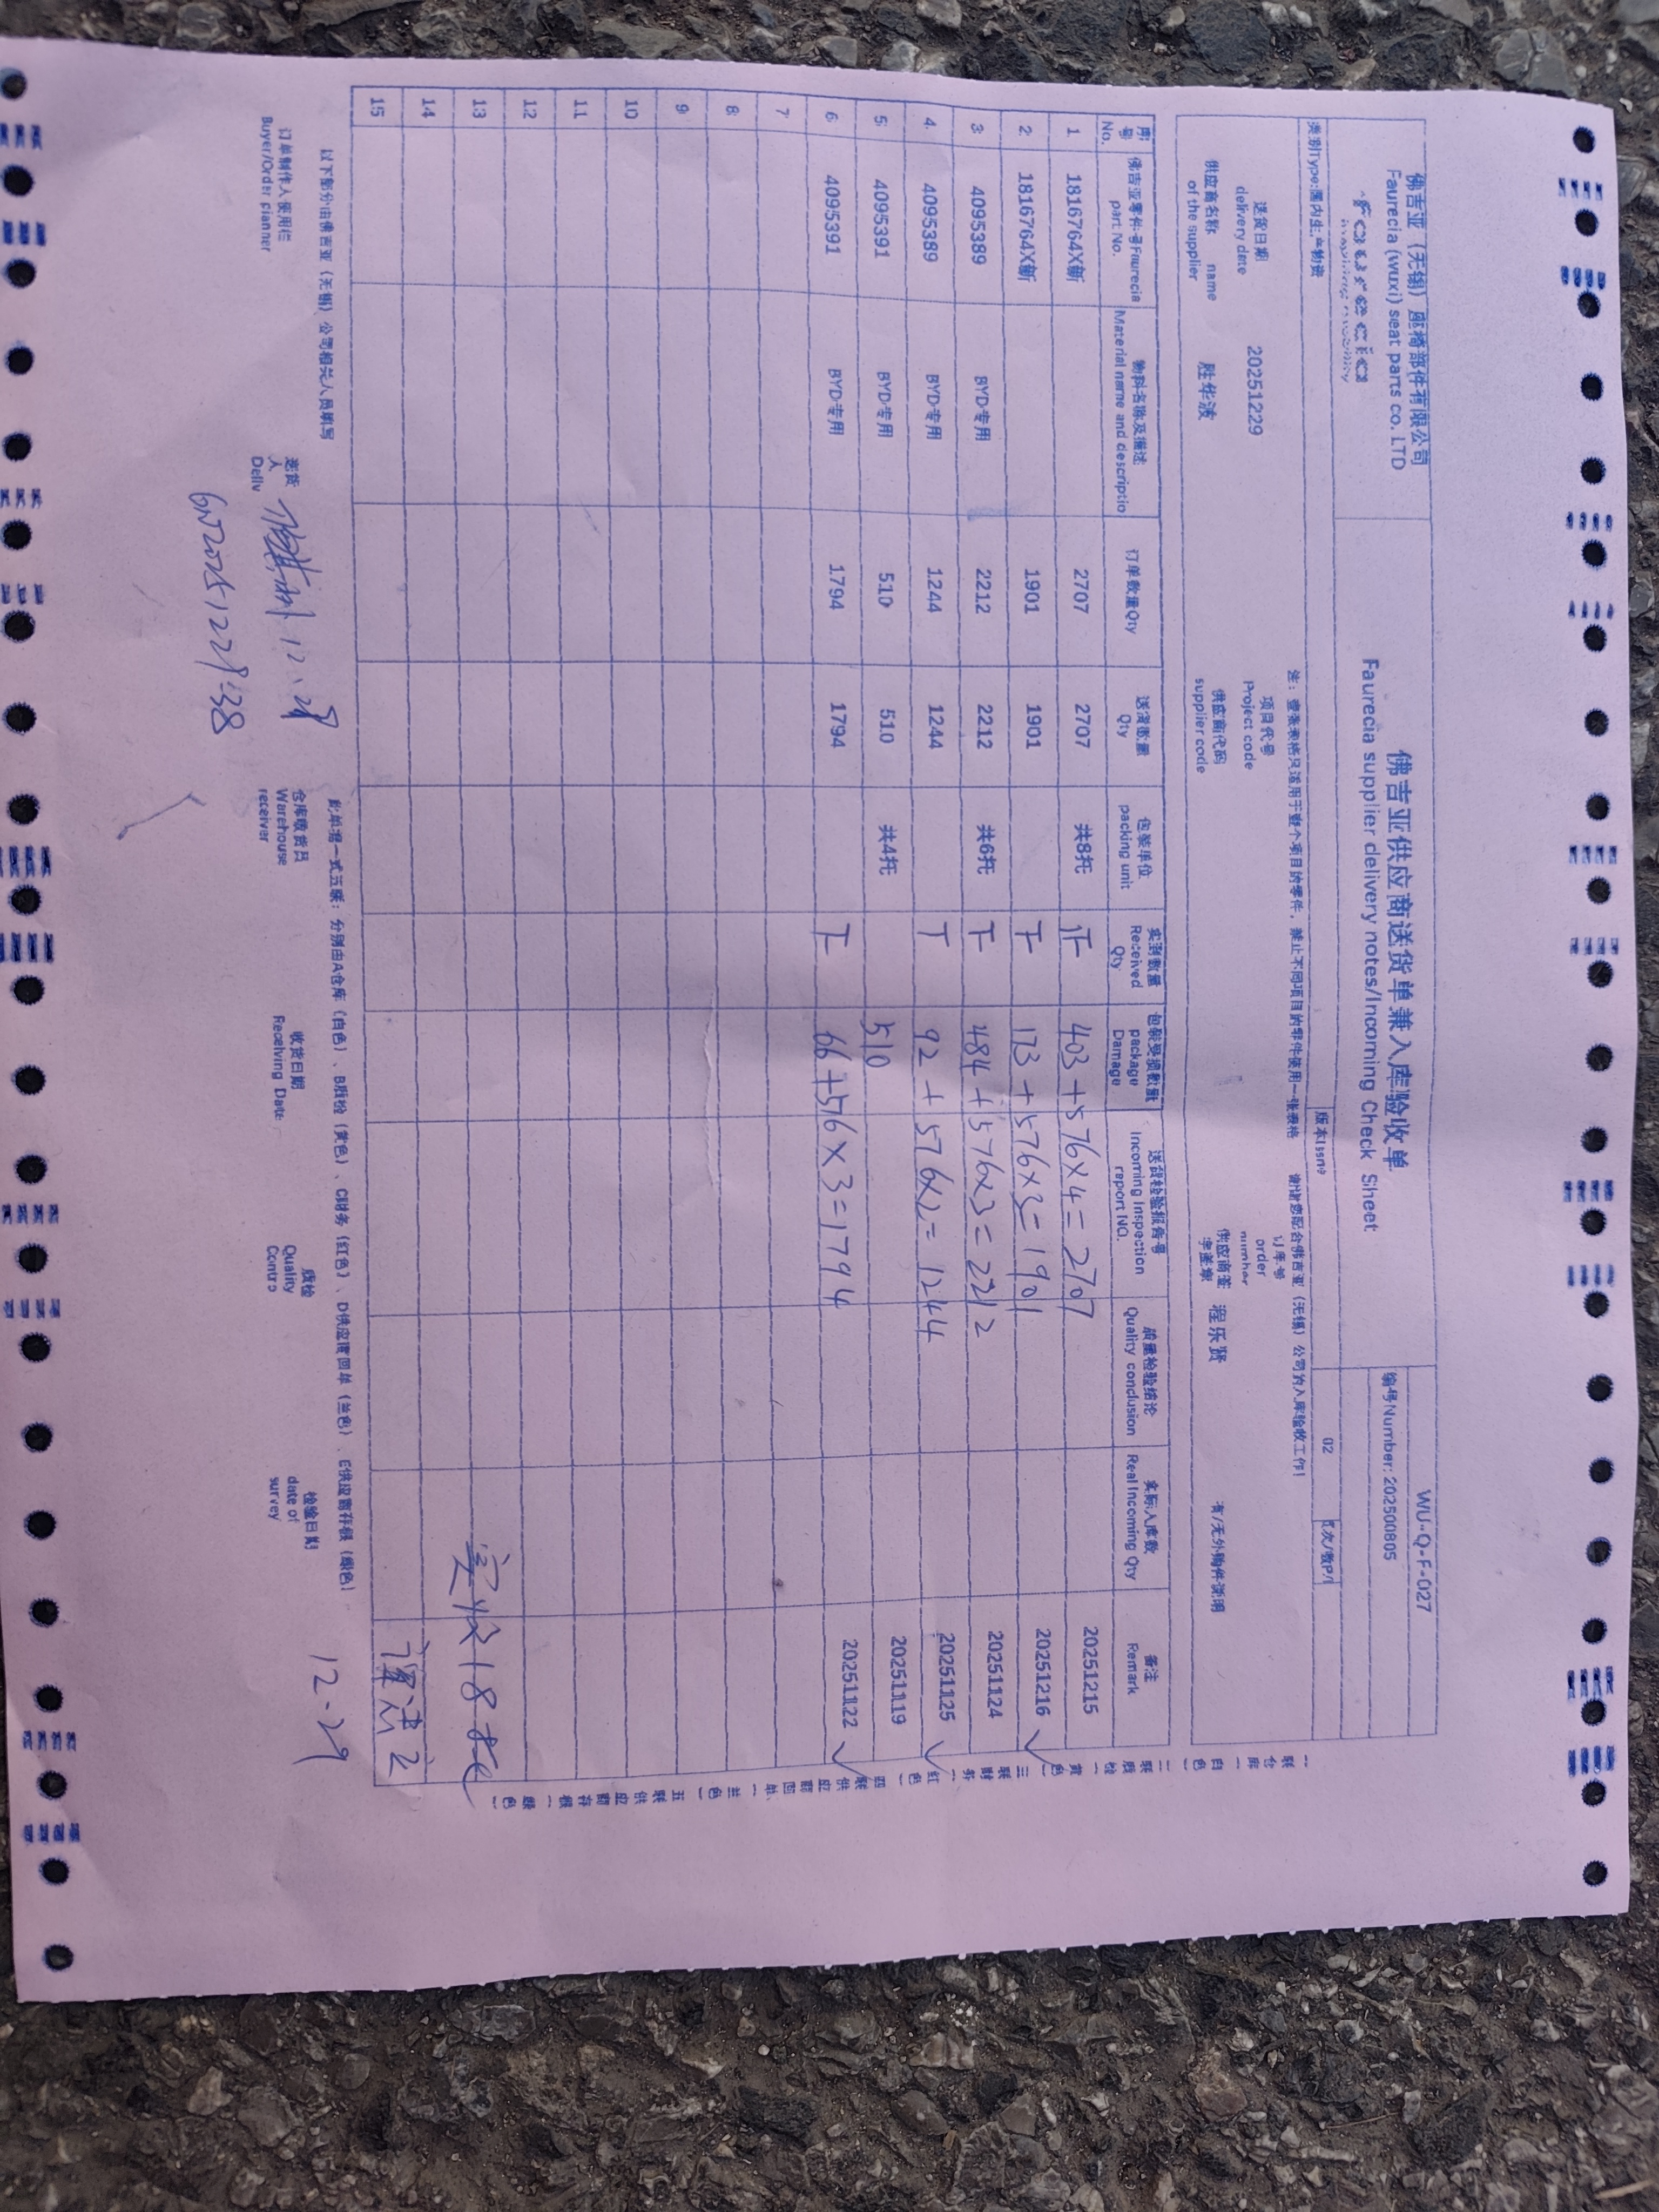 佛吉亚（无锡）座椅部件有限公司
Faurecia (wuxi) seat parts co. LTD
佛吉亚供应商送货单兼入库验收单
Faurecia supplier delivery notes/Incoming Check Sheet
WU-Q-F-027
编号Number: 202500805
类别Type:国内生产物资
版本Issue
02
页次/数P/
注：壹张表格只适用于壹个项目的零件，禁止不同项目的零件使用一张表格 谢谢您配合佛吉亚（无锡）公司的入库验收工作!
送货日期
delivery date
20251229
项目代号
Project code
订单号
order
number
供应商名称 name
of the supplier
胜华波
供应商代码
supplier code
供应商签
字盖章
程乐贤
有/无外购件说明
序号No. 佛吉亚零件号Faurecia part No. 物料名称及描述 Material name and descriptio 订单数量Qty 送货数量Qty 包装单位packing unit 实到数量Received Qty 包装受损数量package Damage 送货检验报告号Incoming Inspection report NO. 质量检验结论Quality conclusion 实际入库数Real Incoming Qty 备注Remark
1 1816764X新 2707 2707 共8托 403+576×4=2707 20251215
2 1816764X新 1901 1901 173+576×3=1901 20251216
3 4095389 BYD专用 2212 2212 共6托 484+576×3=2212 20251124
4 4095389 BYD专用 1244 1244 92+576×2=1244 20251125
5 4095391 BYD专用 510 510 共4托 510 20251119
6 4095391 BYD专用 1794 1794 66+576×3=1794 20251122
7
8
9
10
11
12
13 实收18托
14
15
以下部分由佛吉亚（无锡）公司相关人员填写
此单据一式五联：分别由A仓库（白色）、B质检（黄色）、C财务（红色）、D供应商回单（兰色）、E供应商存根（绿色）
订单制作人使用栏
Buyer/Order planner
送货人
Deliv
12.28
仓库收货员
Warehouse
receiver
收货日期
Receiving Date
质检
Quality
Contro
检验日期
date of
survey
12.29
一联仓库（白色） 二联质检（黄色） 三联财务（红色） 四联供应商回单（兰色） 五联供应商存根（绿色）